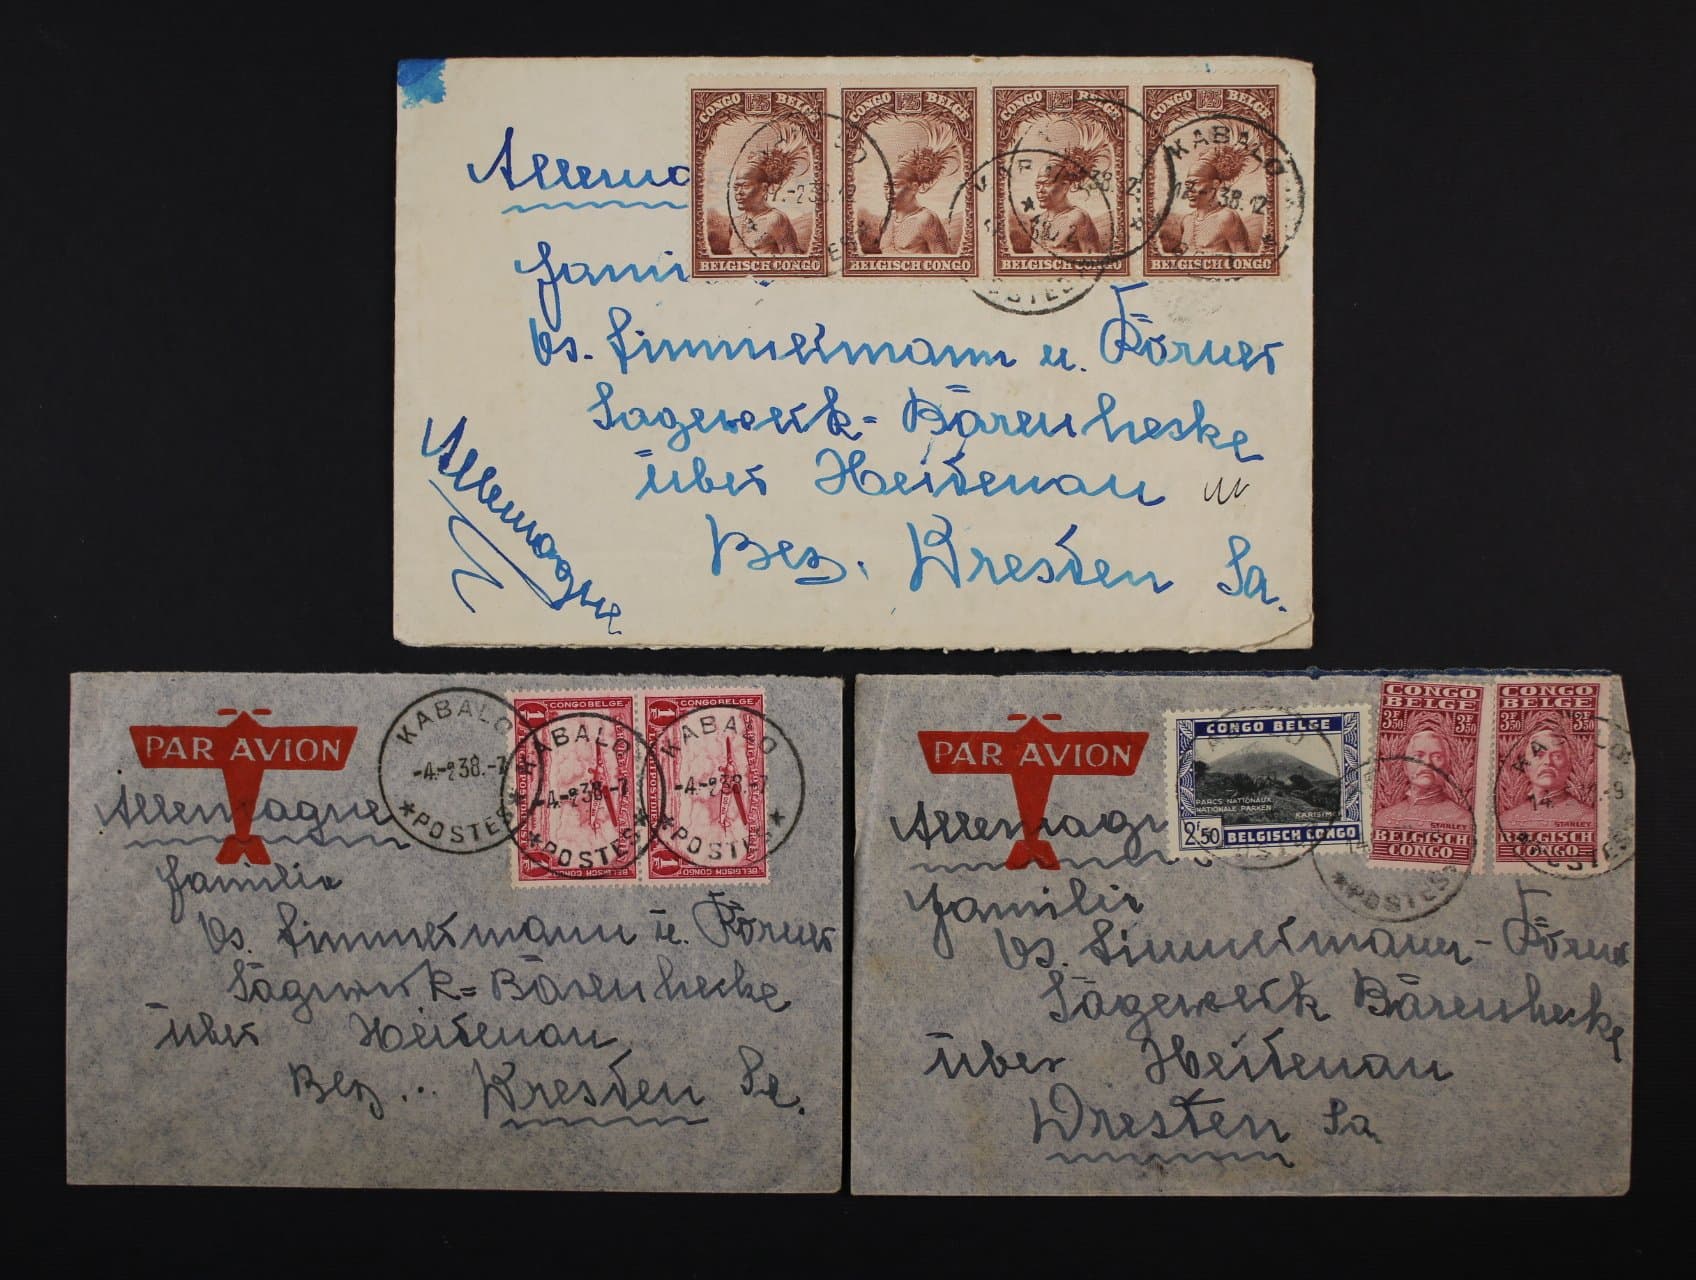 CONGO 1F25 BELGE
BELGISCH CONGO
CONGO 1F25 BELGE
BELGISCH CONGO
CONGO 1F25 BELGE
BELGISCH CONGO
CONGO 1F25 BELGE
BELGISCH CONGO
KABALO
POSTES
Allema
Fami
Bs. Zimmermann u. Körner
Sägewerk = Bärenhecke
über Heidenau
Bez. Dresden Sa.
Allemagne
PAR AVION
KABALO
-4.-2 38.-7
*POSTES*
KABALO
-4.-2 38.-7
*POSTES*
KABALO
-4.-2 38.-7
*POSTES*
CONGO BELGE
1F
BELGISCH CONGO
CONGO BELGE
1F
BELGISCH CONGO
Allemagne
Familie
Bs. Zimmermann u. Körner
Sägewerk = Bärenhecke
über Heidenau
Bez. Dresden Sa.
PAR AVION
CONGO BELGE
PARCS NATIONAUX
NATIONALE PARKEN
KARISIMBI
2F50 BELGISCH CONGO
CONGO
BELGE
3F50 3F50
STANLEY
BELGISCH
CONGO
CONGO
BELGE
3F50 3F50
STANLEY
BELGISCH
CONGO
*POSTES*
Allemagn
Familie
Bs. Zimmermann - Körner
Sägewerk Bärenhecke
über Heidenau
Dresden Sa.